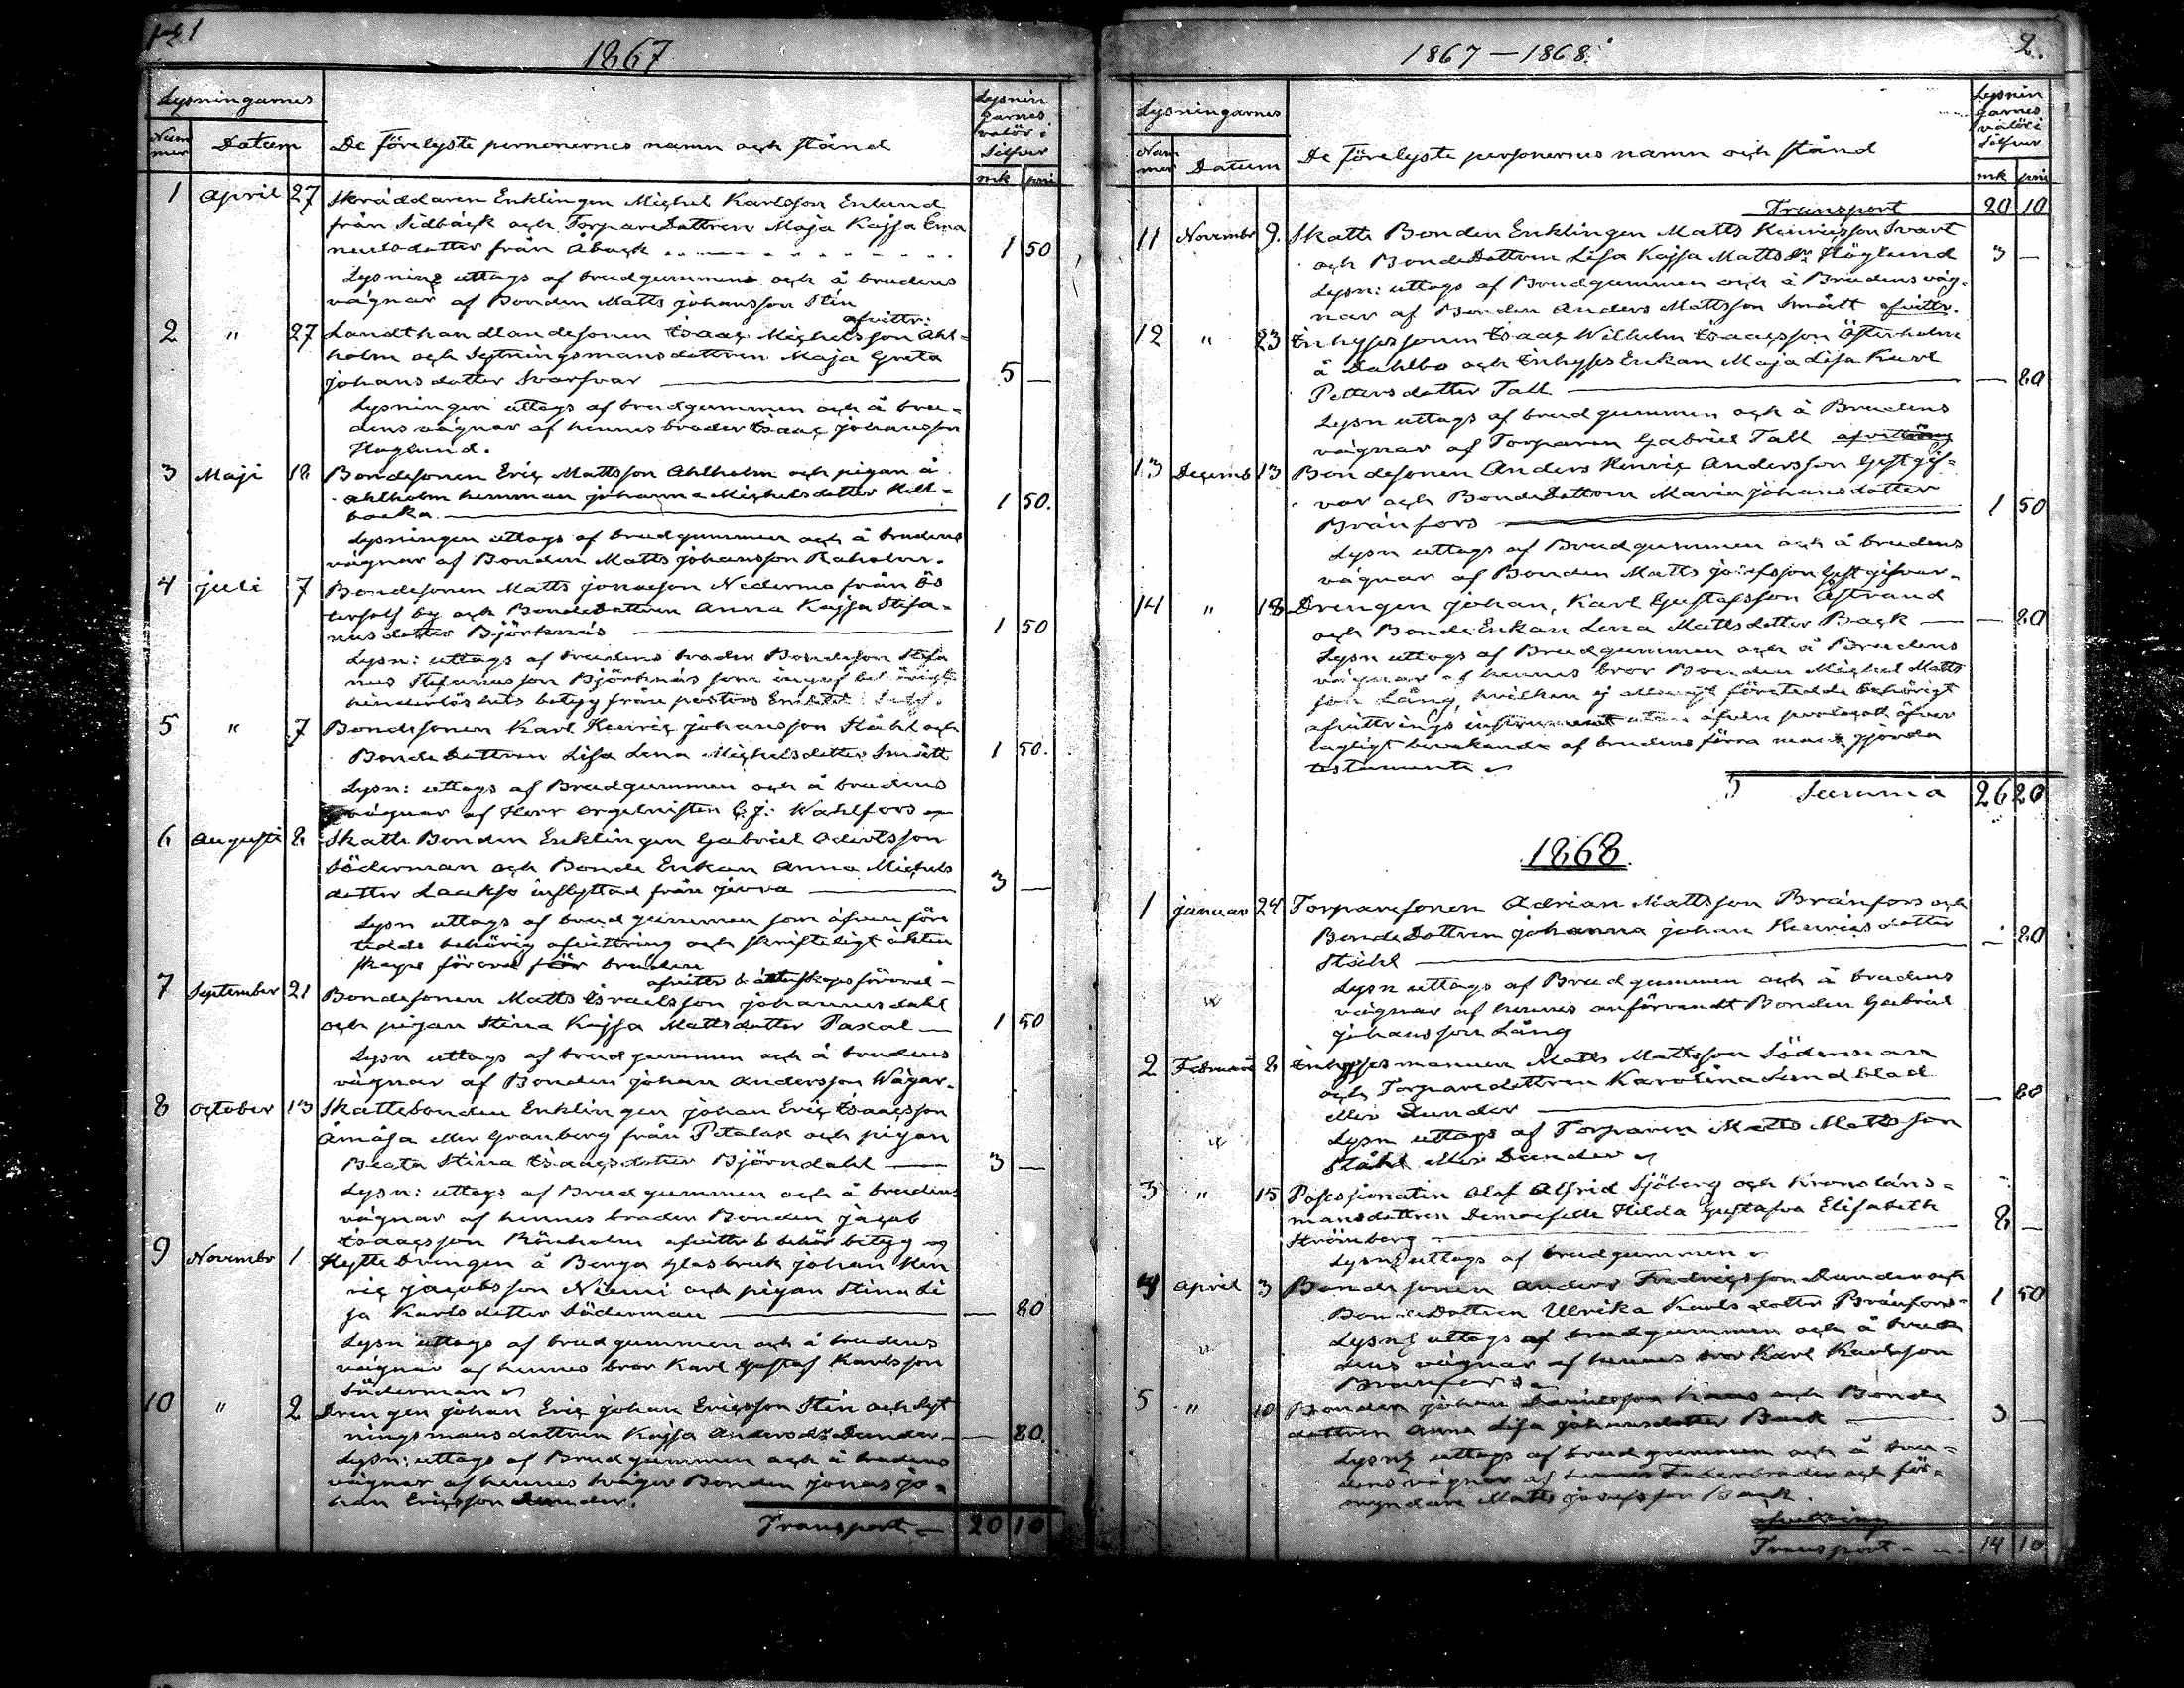 pag 1
1867
Lysningarnes
Num
mer
Datum
De förelyste personernes namn och stånd
Lysnin
garnes
valör i
Silfver
mk pni
1 April 27 Skräddaren Enklingen Michel Karlsson Enlund
från Sidbäck och TorpareDottren Maja Kajsa Ema
nuelsdotter från Åback 1 50
Lysning uttags af brudgummen och å brudens
vägnar af Bonden Matts Johansson Stin
afvittr:
2 " 27 Landthandlandesonen Isaac Michelsson Ahl-
holm och Sytningsmansdottren Maja Greta
Johansdotter Svarfvar 5 —
Lysningen uttags af brudgummen och å bru-
dens vägnar af hennes broder Isaac Johansson
Haglund.
3 Maji 18 Bondesonen Eric Mattsson Ahlholm och pigan å
Ahlholm hemman Johanna Michelsdotter Kill-
backa 1 50.
Lysningen uttags af brudgummen och å brudens
vägnar af Bonden Matts Johansson Raholm.
4 Juli 7 Bondesonen Matts Jonasson Nedermo från Ös
tersolf by och BondeDottren Anna Kajsa Stefa-
nusdotter Björknäs 1 50
Lysn: uttags af brudens broder Bondeson Stefa
nus Stefanusson Björknäs som ingaf behörigt
hinderlöshets betyg från pastors Embetet i Solf.
5 " 7 Bondesonen Karl Henric Johansson Ståhl och
BondeDottren Lisa Lena Michelsdotter Smått 1 50.
Lysn: uttags af Brudgummen och å brudens
vägnar af Herr Orgelnisten C. J: Wahlfors
6 Augusti 8 Skatte Bonden Enklingen Gabriel Adertsson
Söderman och Bonde Enkan Anna Michels
dotter Laakso inflyttad från Jurva 3 —
Lysn uttags af brudgummen som äfven före
tedde behörig afvittring och skrifteligt äkten
skaps förord för bruden
afvittr & äktenskapsförord -
7 September 21 Bondesonen Matts Israelsson Johannesdahl
och pigan Stina Kajsa Mattsdotter Pascal — 1 50
Lysn uttags af brudgummen och å brudens
vägnar af Bonden Johan Andersson Wägar.
8 October 13 Skattebonden Enklingen Johan Eric Isaacsson
Åmåsa eller Granberg från Petalax och pigan
Beata Stina Isaacsdotter Björndahl — 3 —
Lysn: uttags af Brudgummen och å brudens
vägnar af hennes broder Bonden Jacob
Isaacsson Rönholm afvittr & behör betyg
9 Novembr 1 HytteDrengen å Berga Glasbruk Johan Hen
ric Jacobsson Niemi och pigan Stina Li
sa Karlsdotter Söderman — 80
Lysn uttags af brudgummen och å brudens
vägnar af hennes bror Karl Gustaf Karlsson
Söderman
10 " 2 Drengen Johan Eric Johan Ericsson Stin och Syt
ningsmansdottren Kajsa Anders Dr Dunder — 80.
Lysn: uttags af Brudgummen och å brudens
vägnar af hennes svåger Bonden Jonas Jo-
han Ericsson Dunder.
Transport — 20 10
1867—1868.
2.
Lysningarnes
Num
mer
Datum
De förelyste personernes namn och stånd
Lysnin
garnes
valör i
Silfver
mk pni
Transport 20 10
11 Novembr 9. Skatte Bonden Enklingen Matts Henricsson Svart
och BondeDottren Lisa Kajsa Matts Dr Höglund 3 —
Lysn: uttags af Brudgummen och å Brudens väg-
nar af Bonden Anders Mattsson Smått afvittr.
12 " 23 Inhyssonen Isaac Wilhelm Isaacsson Österholm
å Dahlbo och InhysesEnkan Maja Lisa Karl
Pettersdotter Tall — 80
Lysn uttags af brudgummen och å Brudens
vägnar af Torparen Gabriel Tall afvittring
13 Decemb 13 Bondesonen Anders Henric Andersson Gästgif-
var och BondeDottren Maria Johansdotter
Brånfors 1 50
Lysn uttags af Brudgummen och å brudens
vägnar af Bonden Matts Josefsson Gästgifvar.
14 " 18 Drengen Johan, Karl Gustafsson Åstrand
och BondeEnkan Lena Mattsdotter Back — 80
Lysn uttags af Brudgummen och å Brudens
vägnar af hennes bror Bonden Michel Matts
son Lång, hvilken ej allenast företedde behörigt
afvittrings instrument utan äfven protocoll öfver
lagligt bevakande af brudens förra mans gjorda
testamente
Summa 26 20
1868.
1 Januar 24 Torparesonen Adrian Mattsson Brånfors och
BondeDottren Johanna Johan Henricsdotter
Ståhl — 80
Lysn uttags af Brudgummen och å brudens
vägnar af hennes anförvandt Bonden Gabriel
Johansson Lång
2 Februari 8 Inhysesmannen Matts Mattsson Söderman
och Torparedottren Karolina Sundblad
eller Dunder — 80
Lysn uttags af Torparen Matts Mattsson
Ståhl eller Dunder
3 " 15 Possessionaten Olof Alfrid Sjöberg och Kronoläns-
mansdottren Demoiselle Hilda Gustafva Elisabeth
Strömberg 8 —
Lysng uttags af brudgummen
4 April 3 Bondesonen Anders Fredricsson Dunder och
BondeDottren Ulrika Karlsdotter Brånfors- 1 50
Lysng uttags af brudgummen och å bru
dens vägnar af hennes bror Karl Karlsson
Brånfors
5 " 10 Bonden Johan Danielsson Kaas och Bonde
dottren Anna Lisa Johansdotter Back 3 —
Lysng uttags af brudgummen och å bru-
dens vägnar af hennes Faderbroder och för-
myndare Matts Josefsson Back.
afvittring
Transport - 14 10